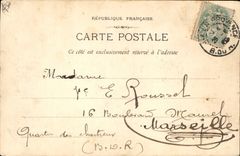 RÉPUBLIQUE FRANÇAISE
CARTE POSTALE
Ce côté est exclusivement réservé à l'adresse
Madame
E Roussel
16 Boulevard
Marseille
Quart des
(B. D. R)